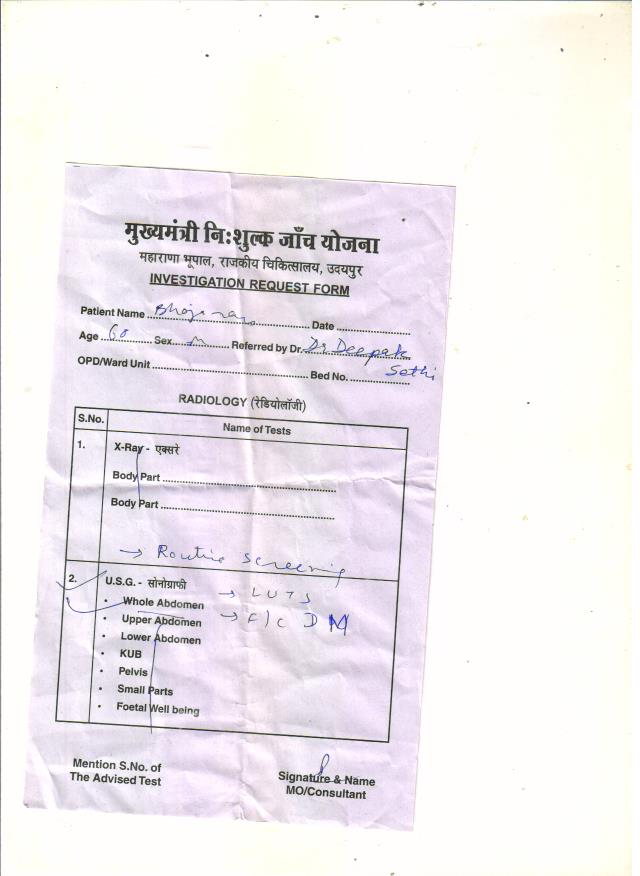 मुख्यमंत्री निःशुल्क जाँच योजना
महाराणा भूपाल, राजकीय चिकित्सालय, उदयपुर
INVESTIGATION REQUEST FORM
Patient Name ........ Date ........
Age 60 Sex M Referred by Dr. Dr Deepak
Sethi
OPD/Ward Unit ........ Bed No. ........
RADIOLOGY (रेडियोलॉजी)
S.No. Name of Tests
1. X-Ray - एक्सरे
Body Part ........
Body Part ........
→ Routine screening
2. U.S.G. - सोनोग्राफी → LUTS
• Whole Abdomen
• Upper Abdomen → F/C DM
• Lower Abdomen
• KUB
• Pelvis
• Small Parts
• Foetal Well being
Mention S.No. of
The Advised Test
Signature & Name
MO/Consultant